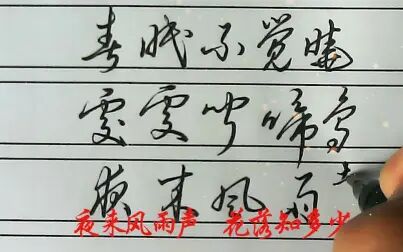 春眠不觉曉
處處闻啼鸟
夜来风雨
夜来风雨声 花落知多少